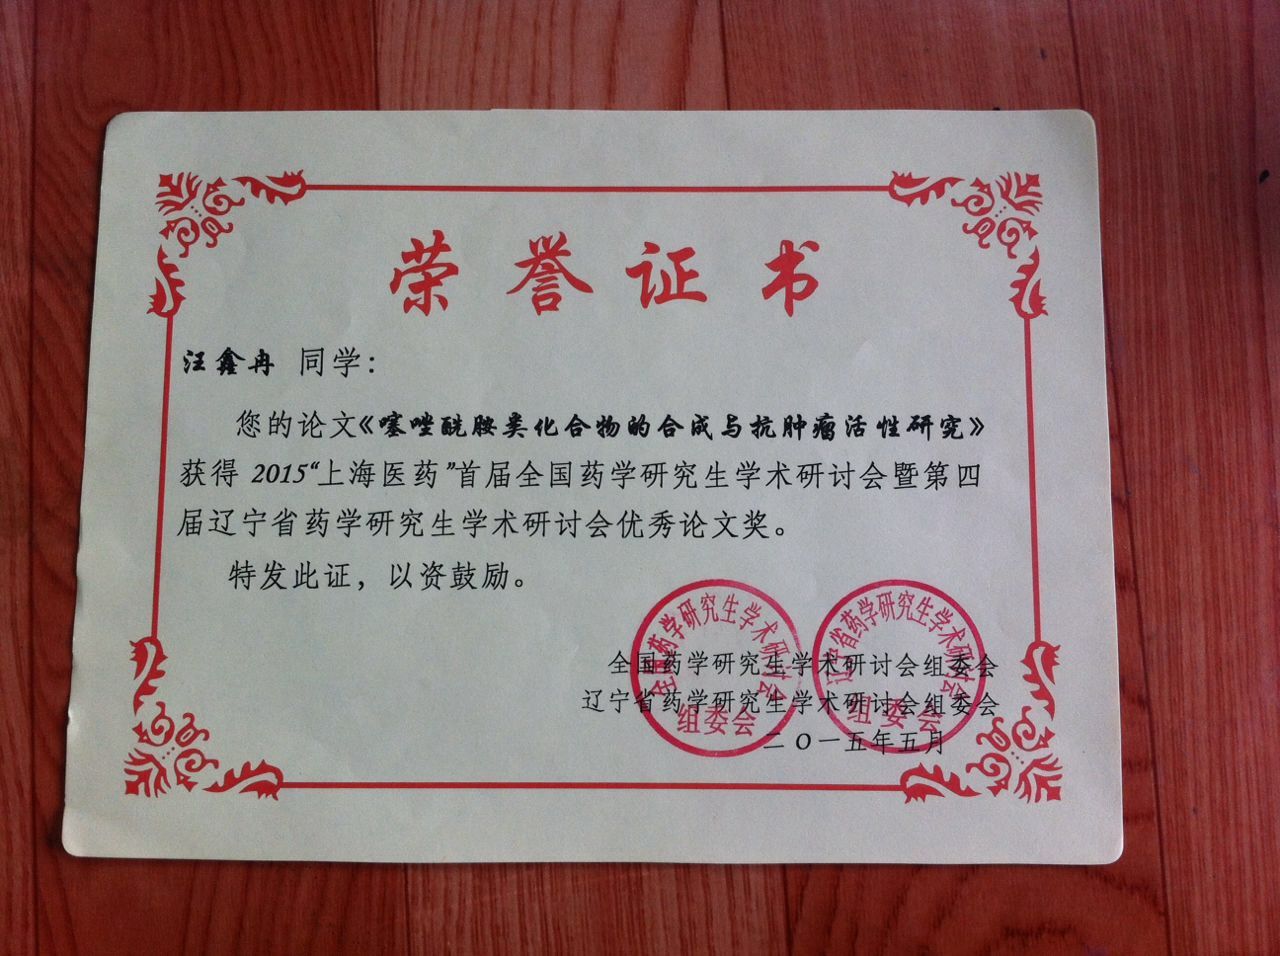 荣誉证书
汪鑫冉 同学：
您的论文《噻唑酰胺类化合物的合成与抗肿瘤活性研究》
获得 2015“上海医药”首届全国药学研究生学术研讨会暨第四
届辽宁省药学研究生学术研讨会优秀论文奖。
特发此证，以资鼓励。
全国药学研究生学术研讨会组委会
辽宁省药学研究生学术研讨会组委会
二〇一五年五月
全国药学研究生学术研讨会
组委会
辽宁省药学研究生学术研讨会
组委会